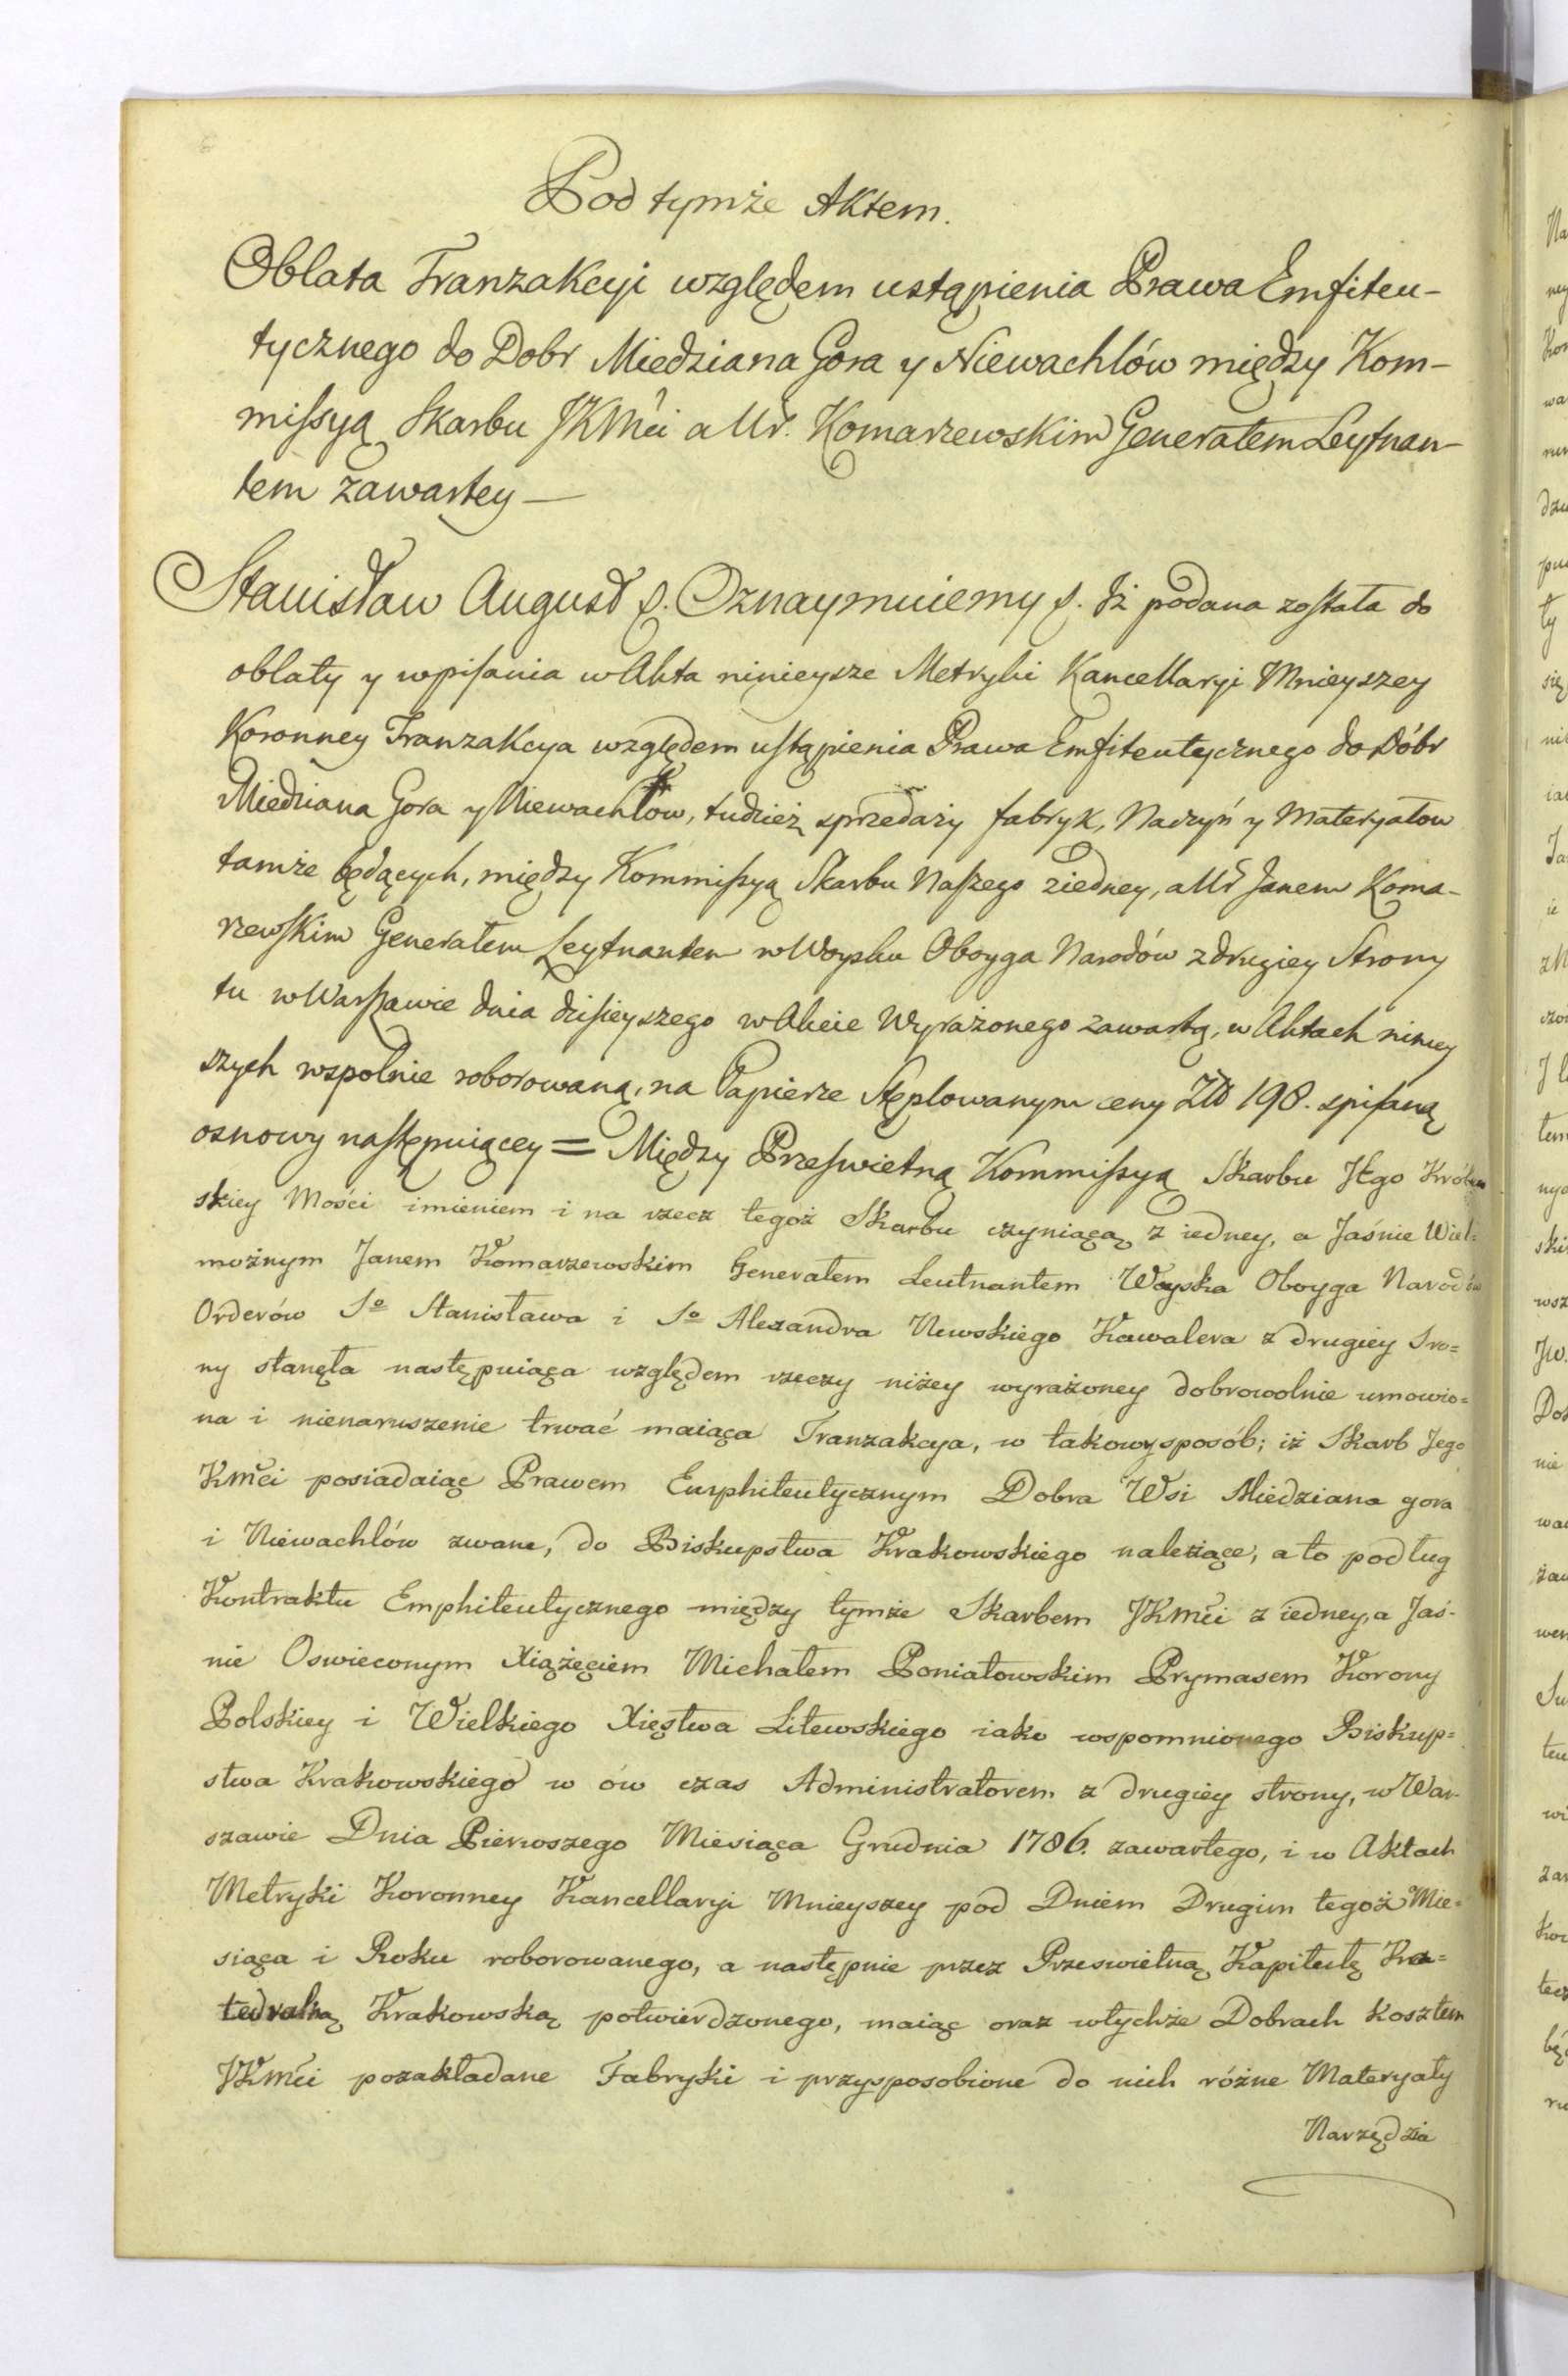 Pod tymże Aktem.
Oblata Tranzakcyi względem ustąpienia Prawa Emfiteu-
tycznego do Dobr Miedziana Gora y Niewachlów między Kom-
missyą Skarbu JKMci a Ur. Komarzewskim Generałem Leytnan-
tem zawartey —
Stanisław August &. Oznaymuiemy &. Iż podana została do
oblaty y wpisania w Akta ninieysze Metryki Kancellaryi Mnieyszey
Koronney Tranzakcya względem ustąpienia Prawa Emfiteutycznego do Dóbr
Miedziana Gora y Niewachlów, tudzież sprzedaży fabryk, Naczyń y Materyałow
tamże będących, między Kommissyą Skarbu Naszego ziedney, a Ur Janem Koma-
rzewskim Generałem Leytnantem w Woysku Oboyga Narodów z drugiey Strony
tu w Warszawie dnia dzisieyszego w Akcie Wyrażonego zawartą, w Aktach niniey
szych wspolnie roborowaną, na Papierze Stęplowanym ceny Złł 198. spisaną
osnowy następuiącey = Między Prześwietną Kommissyą Skarbu Jego Królew
skiey Mości imieniem i na rzecz tegoż Skarbu czyniącą z iedney, a Jaśnie Wiel=
możnym Janem Komarzewskim Generałem Leutnantem Woyska Oboyga Narodów
Orderów So Stanisława i So Alexandra Newskiego Kawalera z drugiey Stro=
ny stanęła następuiąca względem rzeczy niżey wyrażoney dobrowolnie umowio=
na i nienaruszenie trwać maiąca Tranzakcya, w takowy sposób; iż Skarb Jego
KMci posiadaiąc Prawem Emphiteutycznym Dobra Wsi Miedziana gora
i Niewachlów zwane, do Biskupstwa Krakowskiego należące, a to podług
Kontraktu Emphiteutycznego między tymże Skarbem JKMci z iedney, a Jaś-
nie Oswieconym Xiążęciem Michałem Poniatowskim Prymasem Korony
Polskiey i Wielkiego Xięstwa Litewskiego iako wspomnionego Biskup=
stwa Krakowskiego w ów czas Administratorem z drugiey strony, w War-
szawie Dnia Pierwszego Miesiąca Grudnia 1786. zawartego, i w Aktach
Metryki Koronney Kancellaryi Mnieyszey pod Dniem Drugim tegoż Mie=
siąca i Roku roborowanego, a następnie przez Przeswietną Kapitułę Ka=
tedralną Krakowską potwierdzonego, maiąc oraz wtychże Dobrach kosztem
JKMci pozakładane Fabryki i przysposobione do nich różne Materyały
Narzędzia